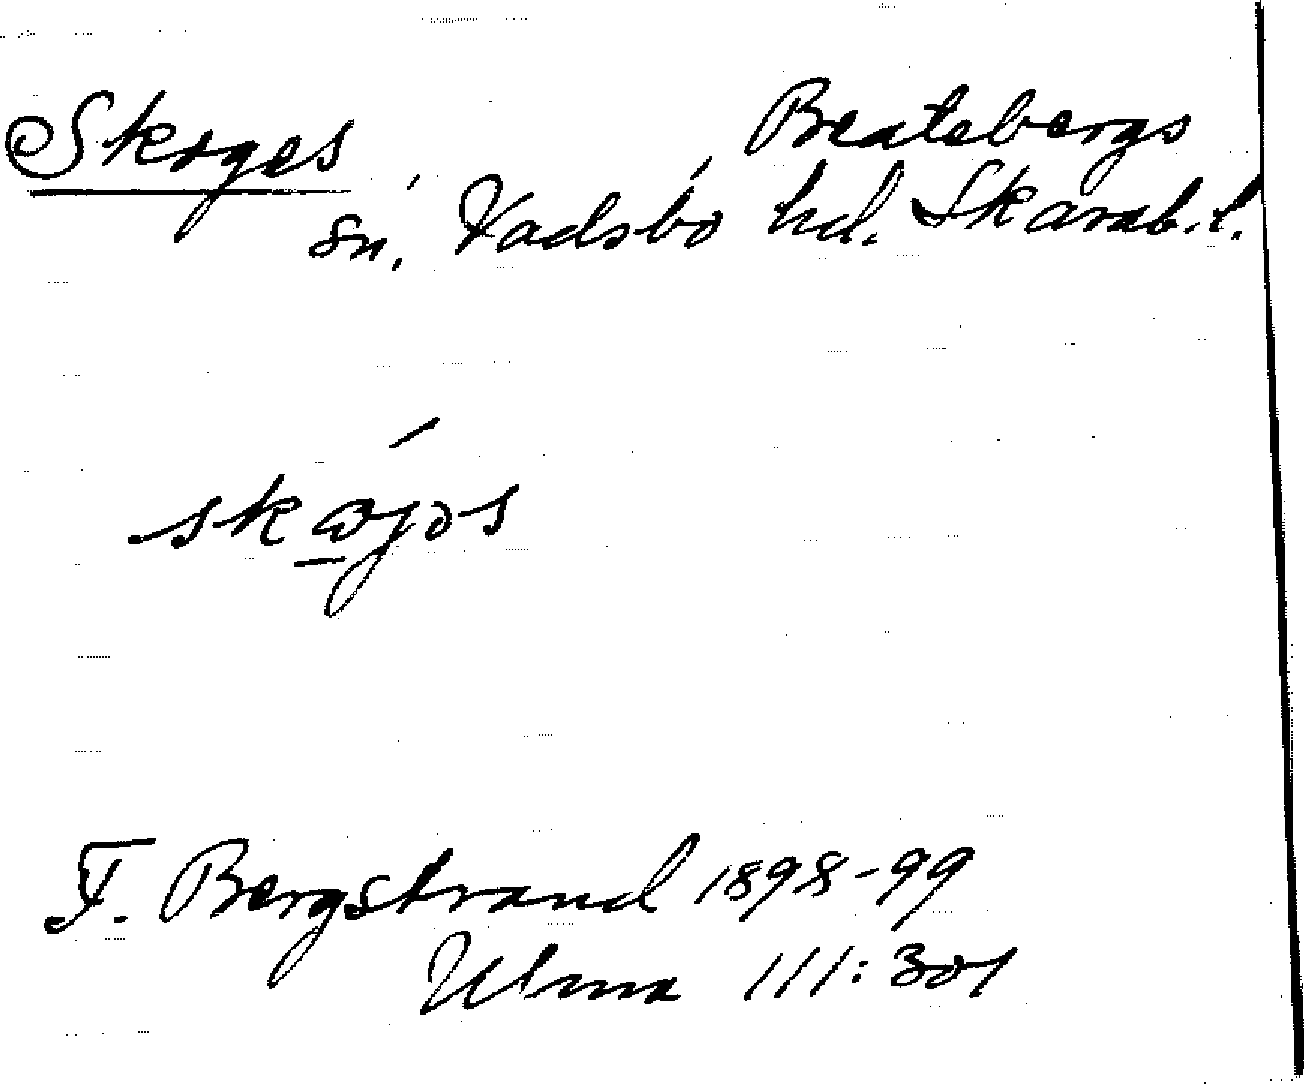 Skoges Beatebergs
sn. Vadsbo hd. Skarab.l.
F. Bergstrand 1898-99
Ulma 111:301